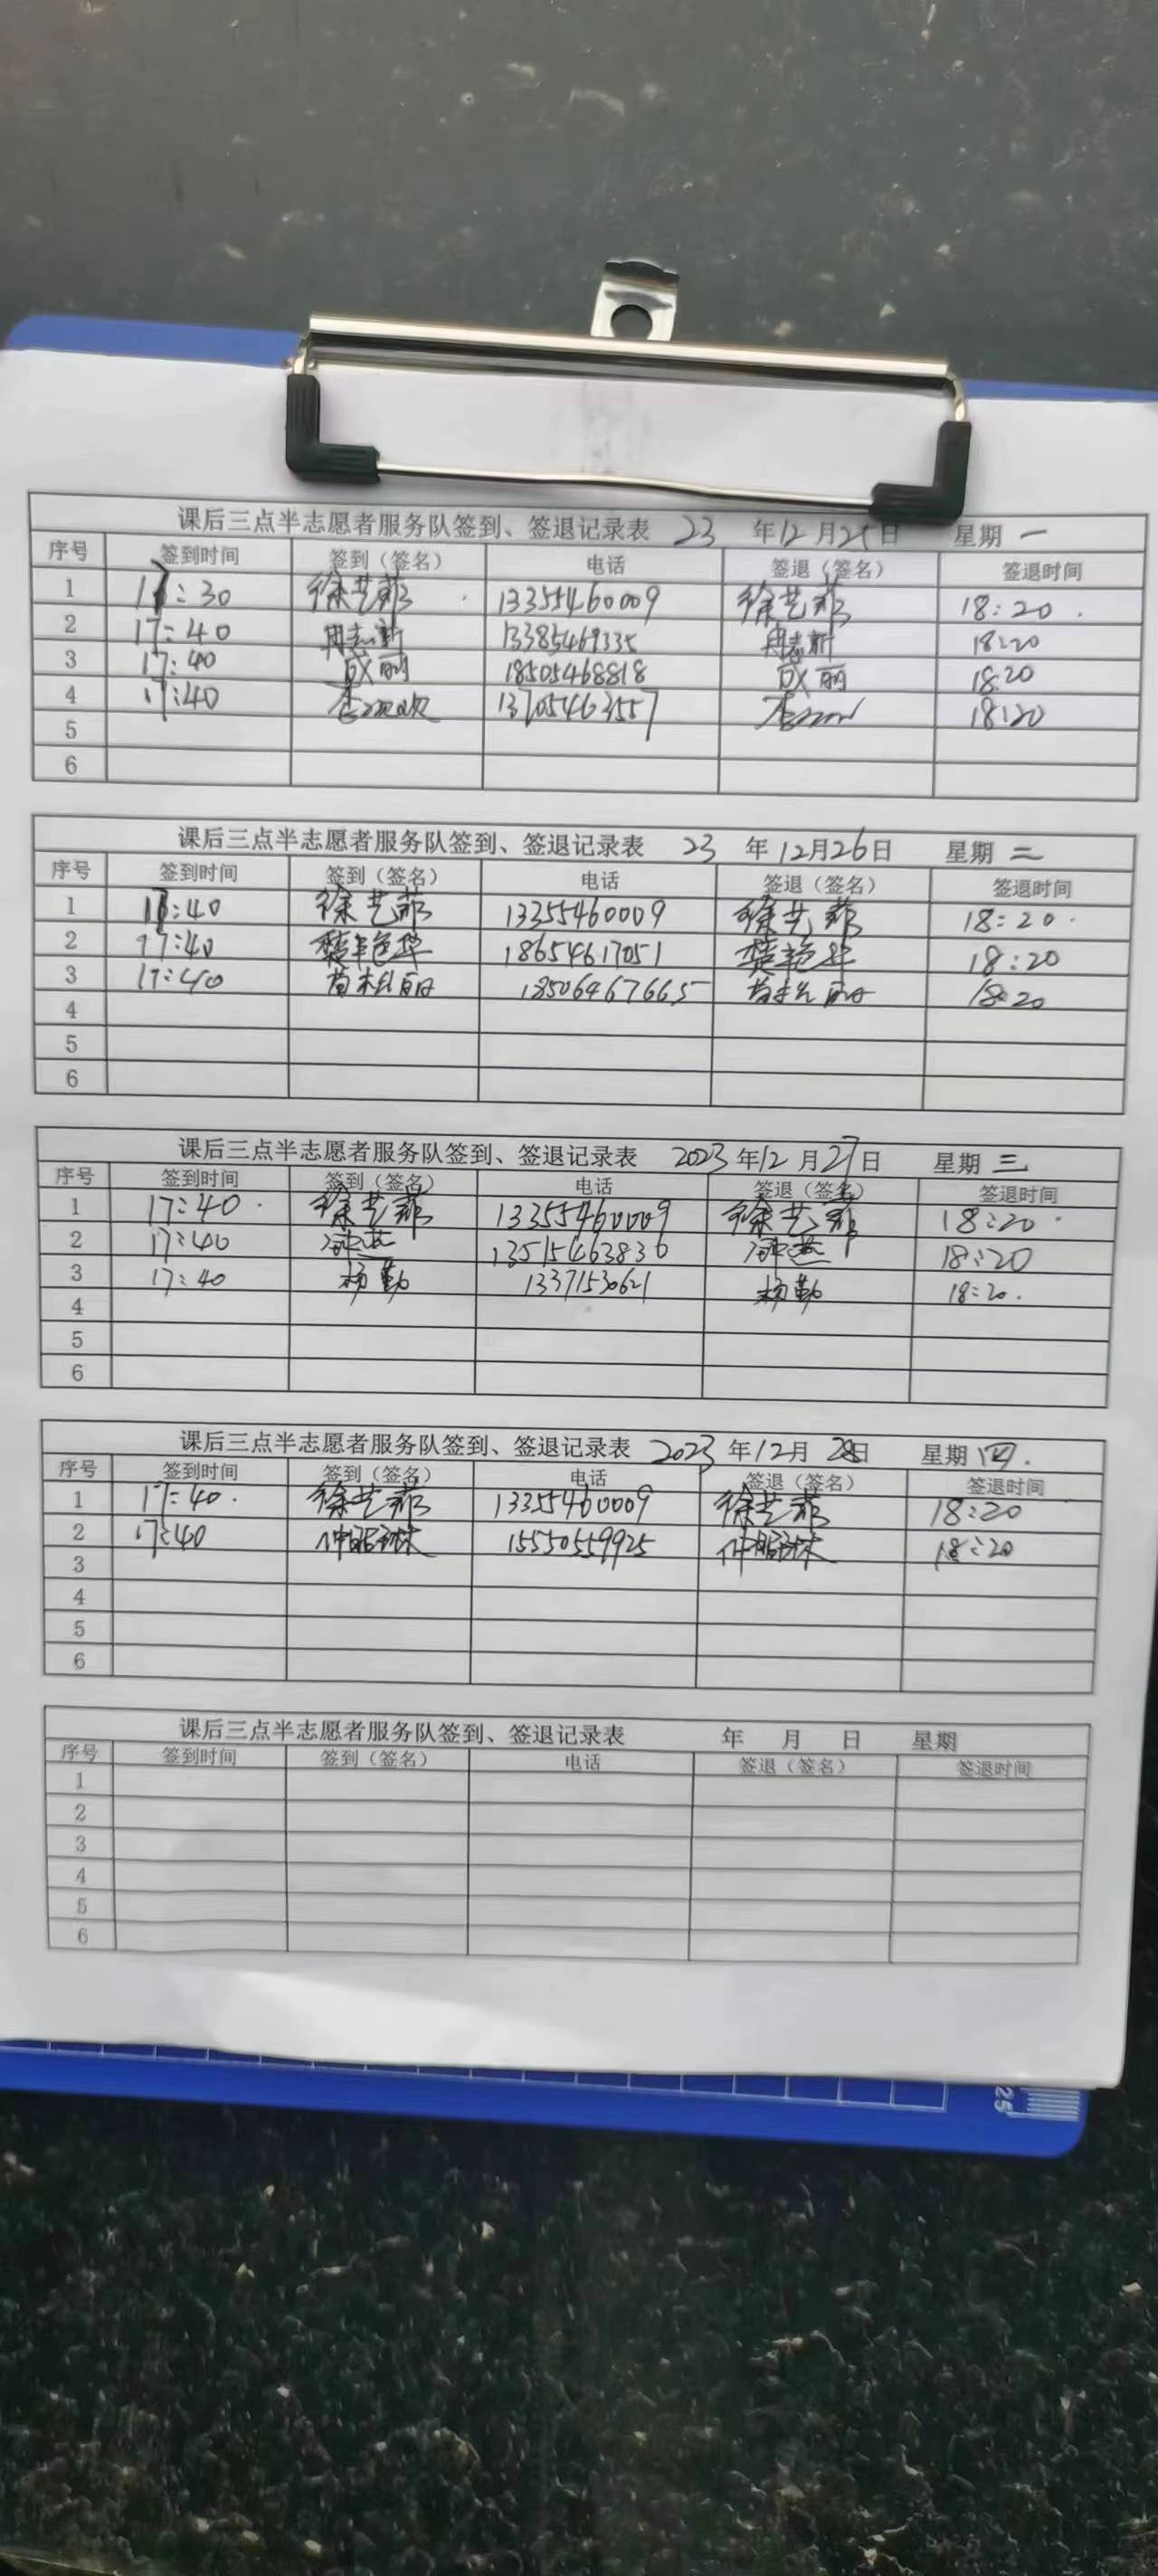 课后三点半志愿者服务队签到、签退记录表 23 年12月25日 星期 一
序号 签到时间 签到（签名） 电话 签退（签名） 签退时间
1 17:30 徐艺菲 13355460009 徐艺菲 18:20
2 17:40 冉志新 13385469335 冉志新 18:20
3 17:40 成丽 18505468818 成丽 18:20
4 17:40 13705463557 18:20
5
6
课后三点半志愿者服务队签到、签退记录表 23 年12月26日 星期 二
序号 签到时间 签到（签名） 电话 签退（签名） 签退时间
1 17:40 徐艺菲 13355460009 徐艺菲 18:20
2 17:40 樊艳华 18654617051 樊艳华 18:20
3 17:40 18506467665 18:20
4
5
6
课后三点半志愿者服务队签到、签退记录表 2023 年12月27日 星期 三
序号 签到时间 签到（签名） 电话 签退（签名） 签退时间
1 17:40 徐艺菲 13355460009 徐艺菲 18:20
2 17:40 13515463836 18:20
3 17:40 杨勤 13371530621 杨勤 18:20
4
5
6
课后三点半志愿者服务队签到、签退记录表 2023 年12月28日 星期 四
序号 签到时间 签到（签名） 电话 签退（签名） 签退时间
1 17:40 徐艺菲 13355460009 徐艺菲 18:20
2 17:40 15550559925 18:20
3
4
5
6
课后三点半志愿者服务队签到、签退记录表 年 月 日 星期
序号 签到时间 签到（签名） 电话 签退（签名） 签退时间
1
2
3
4
5
6
25